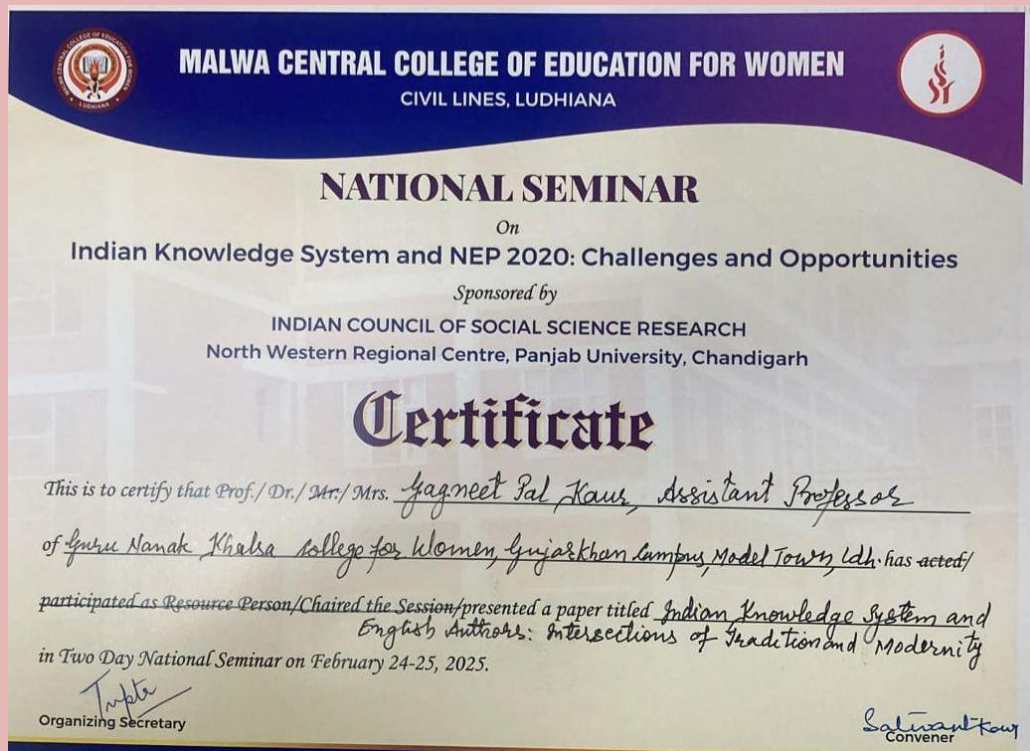 MALWA CENTRAL COLLEGE OF EDUCATION FOR WOMEN
CIVIL LINES, LUDHIANA
NATIONAL SEMINAR
On
Indian Knowledge System and NEP 2020: Challenges and Opportunities
Sponsored by
INDIAN COUNCIL OF SOCIAL SCIENCE RESEARCH
North Western Regional Centre, Panjab University, Chandigarh
Certificate
This is to certify that Prof./ Dr./ Mr./ Mrs. Gagneet Pal Kaur, Assistant Professor
of Guru Nanak Khalsa College for Women, Gujarkhan Campus, Model Town, Ldh. has acted/
participated as Resource Person/Chaired the Session/presented a paper titled Indian Knowledge System and
English Authors: Intersections of Tradition and Modernity
in Two Day National Seminar on February 24-25, 2025.
Organizing Secretary
Satwant Kaur
Convener